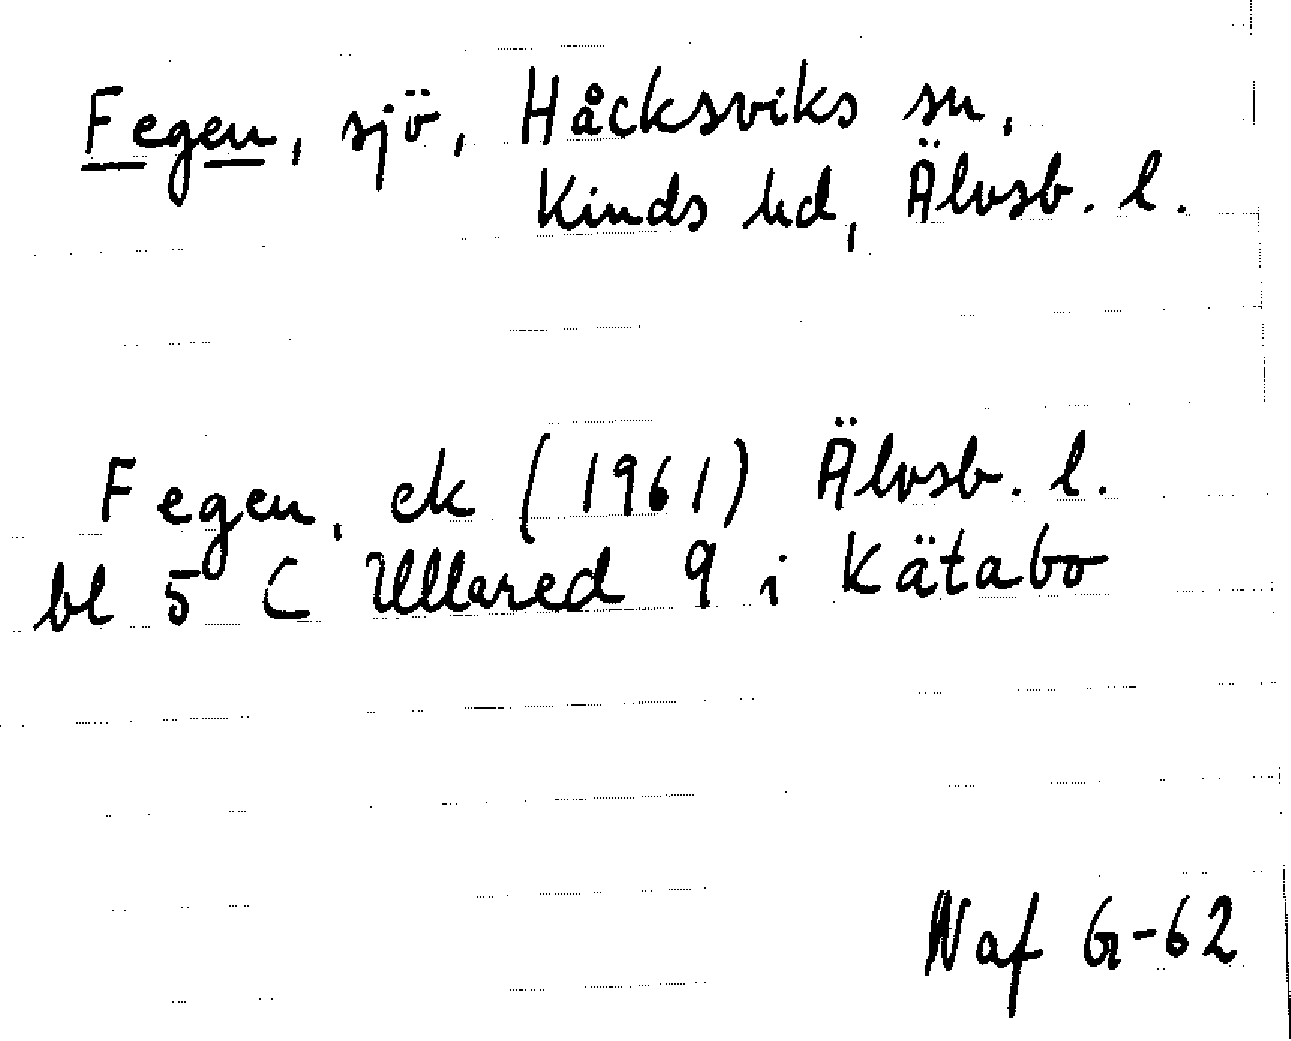 Fegen, sjö, Håcksviks sn,
Kinds hd, Älvsb. l.
Fegen, ek (1961) Älvsb. l.
bl 5 C Ullared 9 i Kätabo
Naf G-62